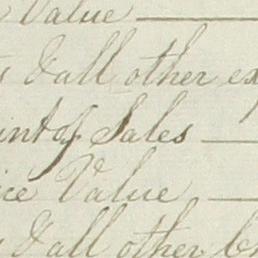 Value
& all other ex
int of Sales
ice Value
& all other